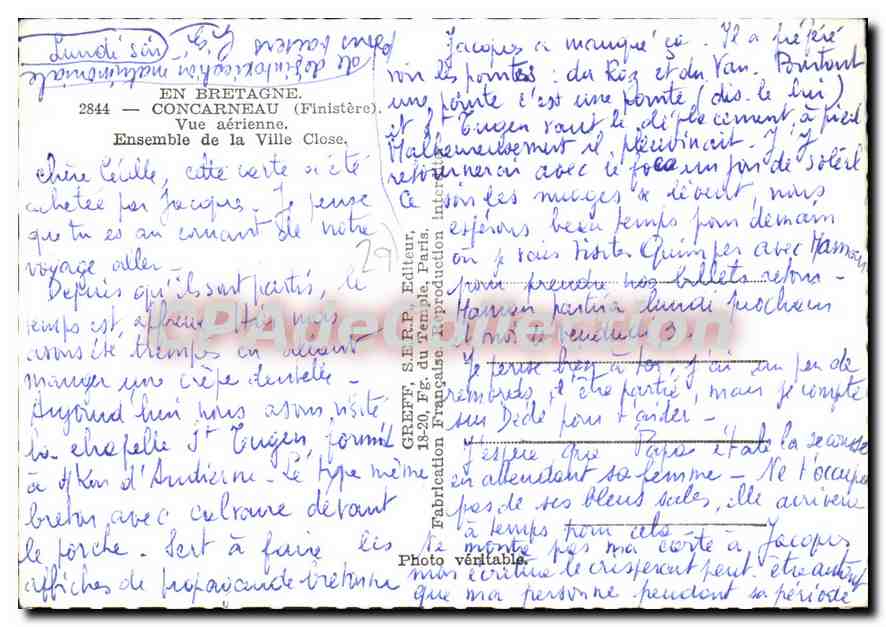 Lundi soir
EN BRETAGNE.
2844 — CONCARNEAU (Finistère).
Vue aérienne.
Ensemble de la Ville Close.
Chère Cécille, cette carte a été
achetée par Jacques. Je pense
que tu es au courant de notre
voyage aller -
Depuis qu'ils sont partis, le
temps est affreux. Hier nous
avons été trempés en allant
manger une crêpe dentelle -
Aujourd'hui nous avons visité
la chapelle St Tugen, formid
à 4 km d'Audierne - Le type même
breton avec calvaire devant
le porche. Sert à faire les
affiches de propagande bretonne
29
GREFF, S.E.R.P., Editeur,
18-20, Fg. du Temple, Paris.
Fabrication Française. Reproduction interdite
Photo véritable.
Jacques a manqué ça. Il a préféré
voir les pointes : du Raz et du Van. Pourtant
une pointe c'est une pointe (dis-le lui)
et St Tugen vaut le déplacement à pied
Malheureusement il pleuvinait. J'y
retournerai avec le foca un jour de soleil
Ce soir les nuages se lèvent, nous
espérons beau temps pour demain
où je vais visiter Quimper avec Maman
pour prendre nos billets retour -
Maman partira lundi prochain
et moi le vendredi 3.
Je pense bien à toi, j'ai un peu de
remords d'être partie, mais je compte
sur Dédé pour t'aider -
J'espère que Papa étale la secousse
en attendant sa femme - Ne t'occupe
pas de ses bleus sales, elle arrivera
à temps pour cela
Ne montre pas ma carte à Jacques
mon écriture le crisperait peut-être autant
que ma personne pendant sa période
de désintoxication matrimoniale
gros baisers